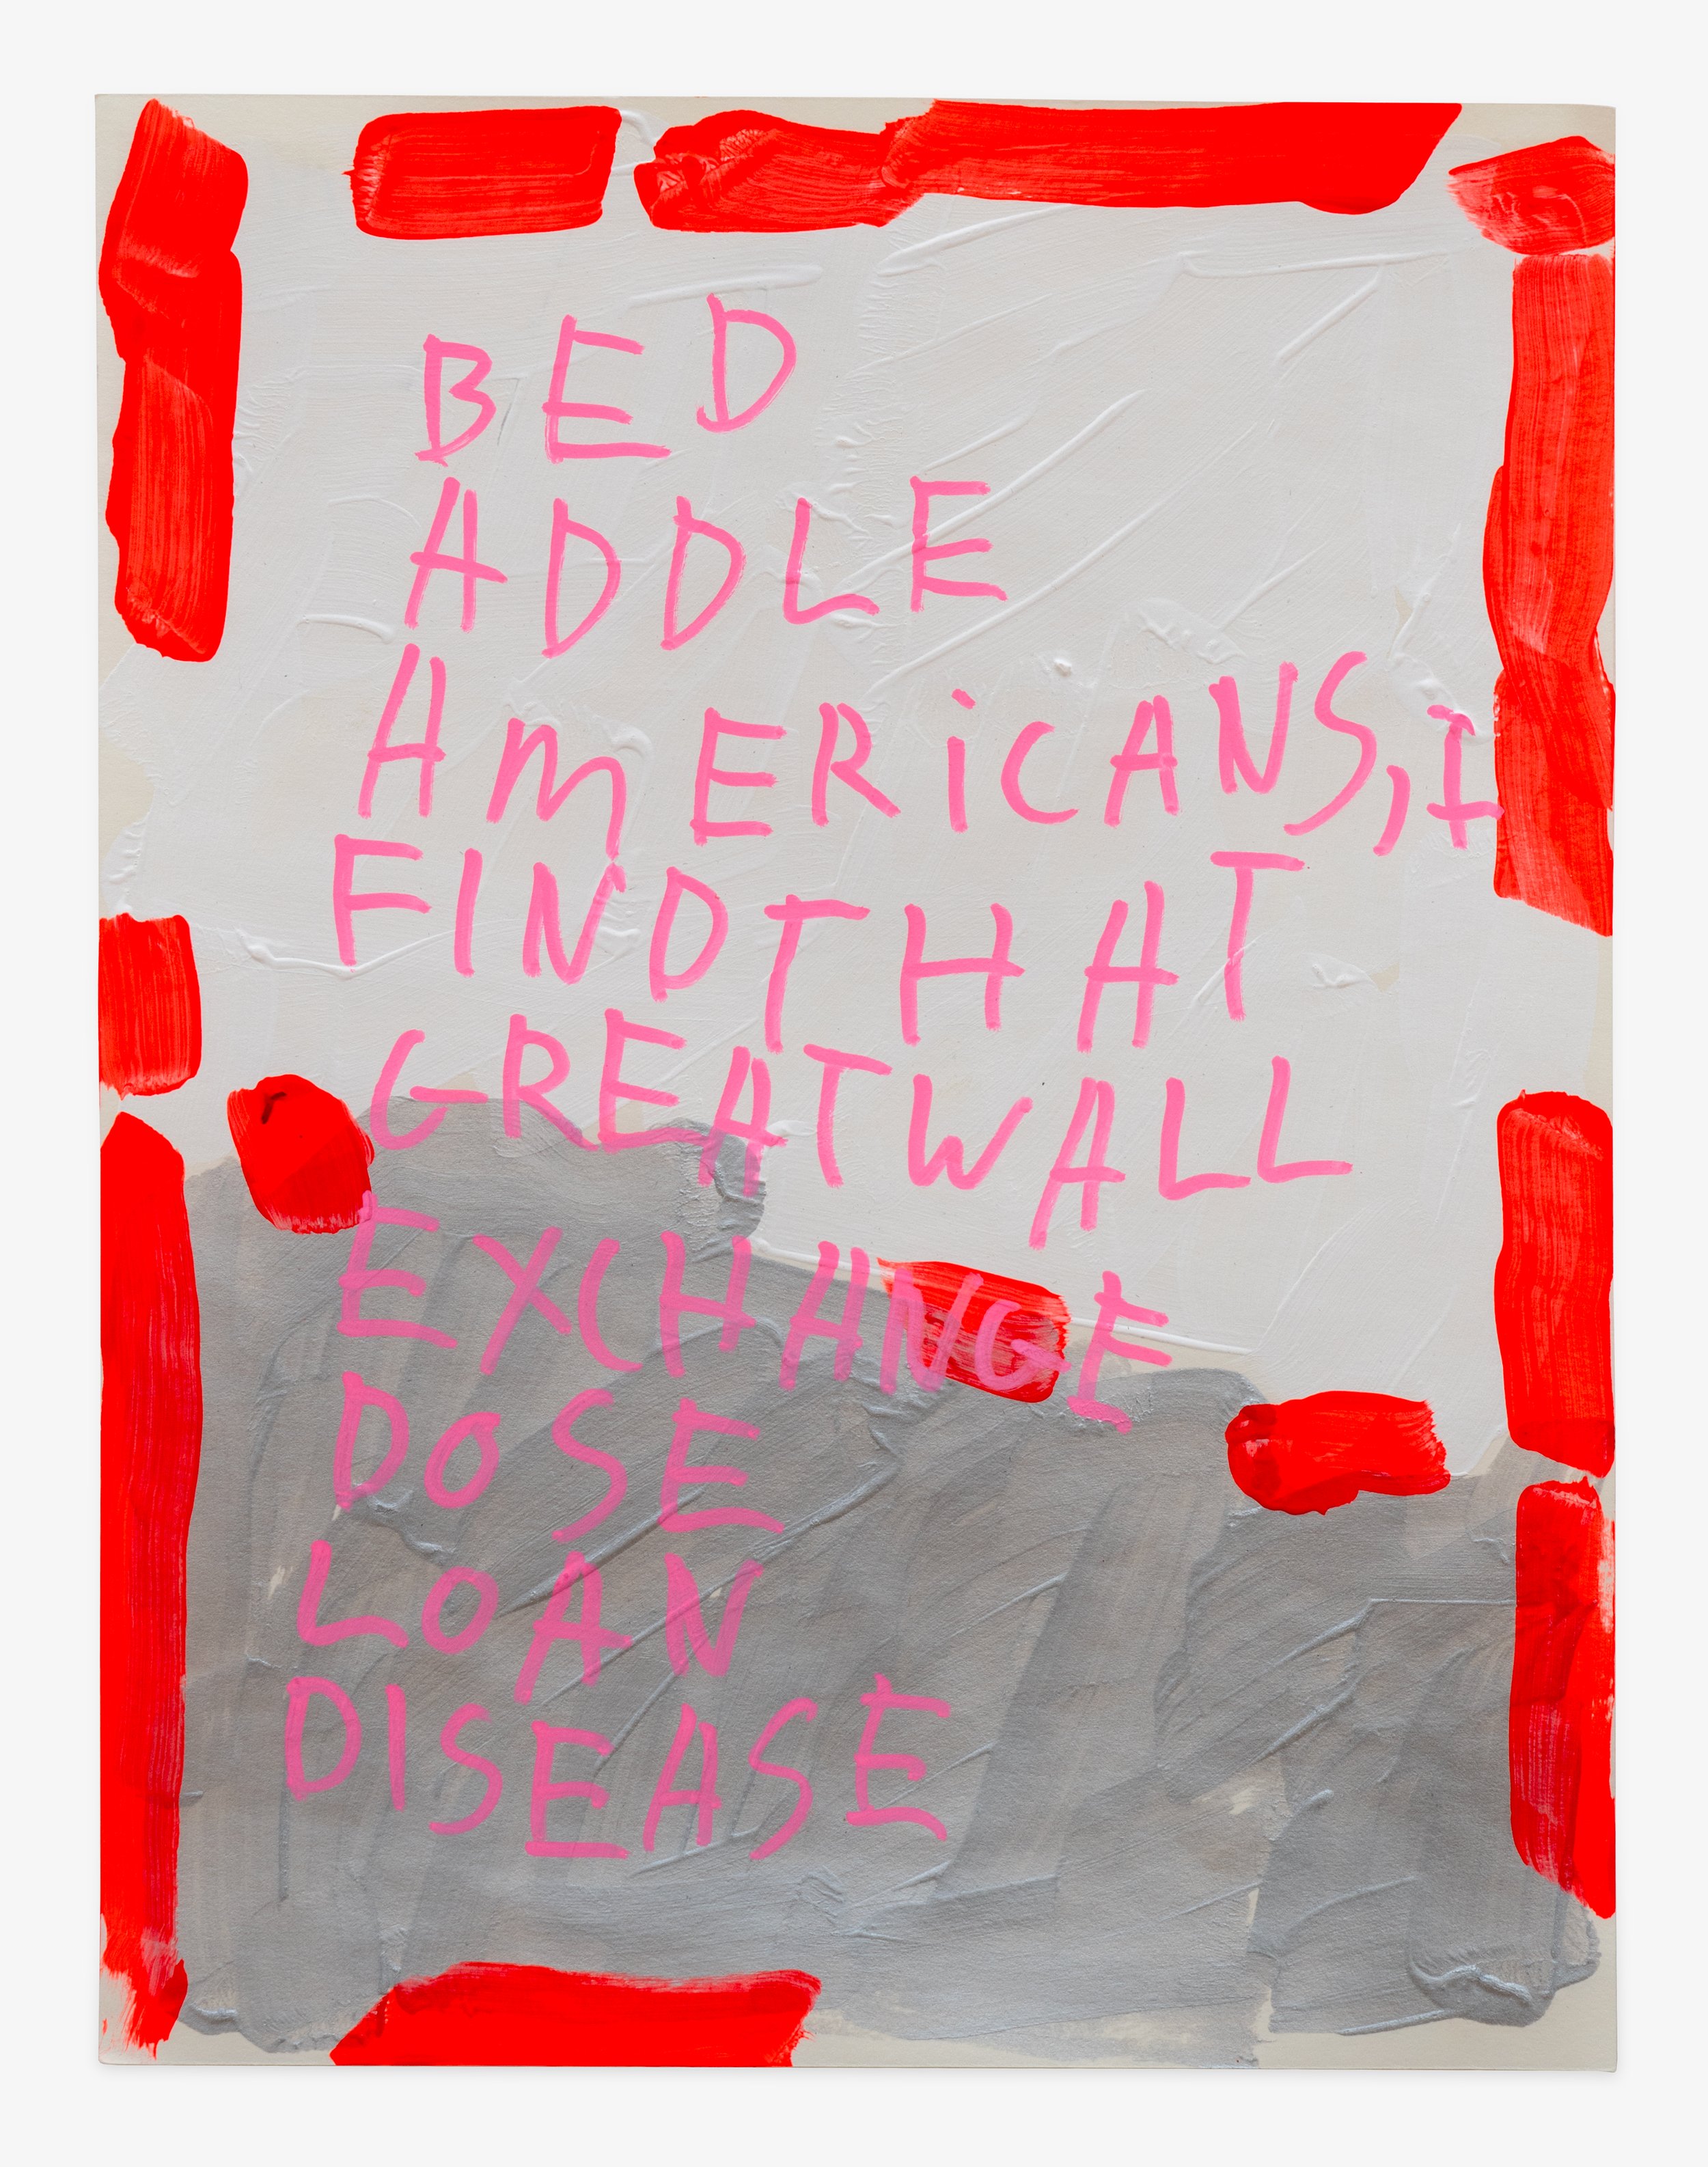 BED
ADDLE
AmERiCANS, I
FIND THAT
GREAT WALL
EXCHANGE
DOSE
LOAN
DISEASE